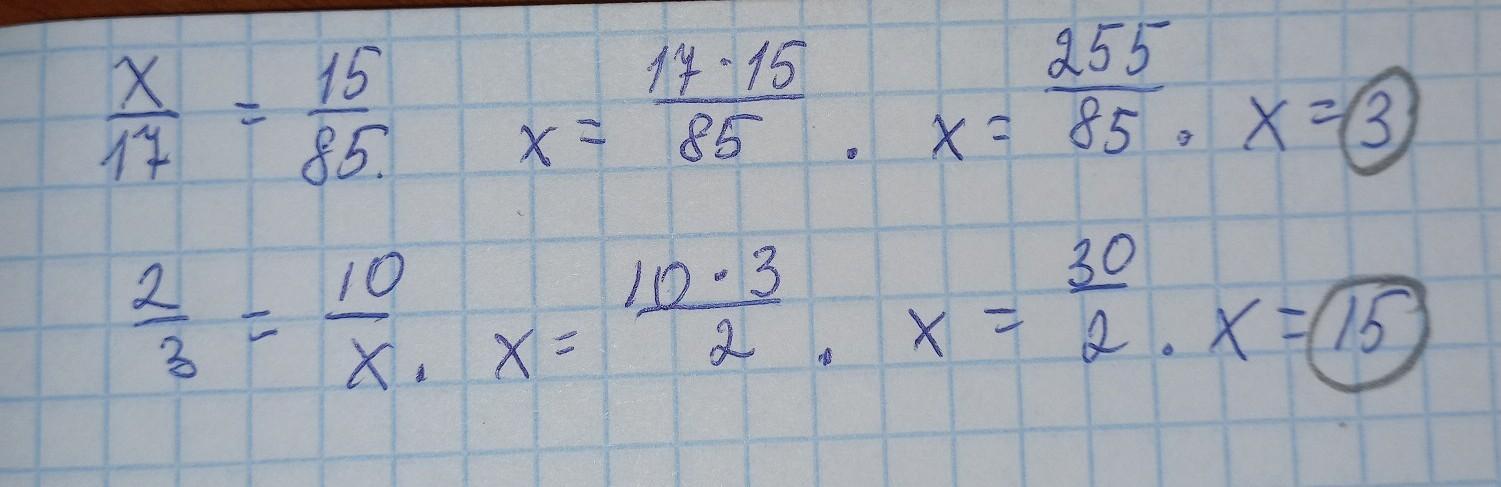 x/17 = 15/85. x = 17·15/85. x = 255/85. x = 3
2/3 = 10/x. x = 10·3/2. x = 30/2. x = 15